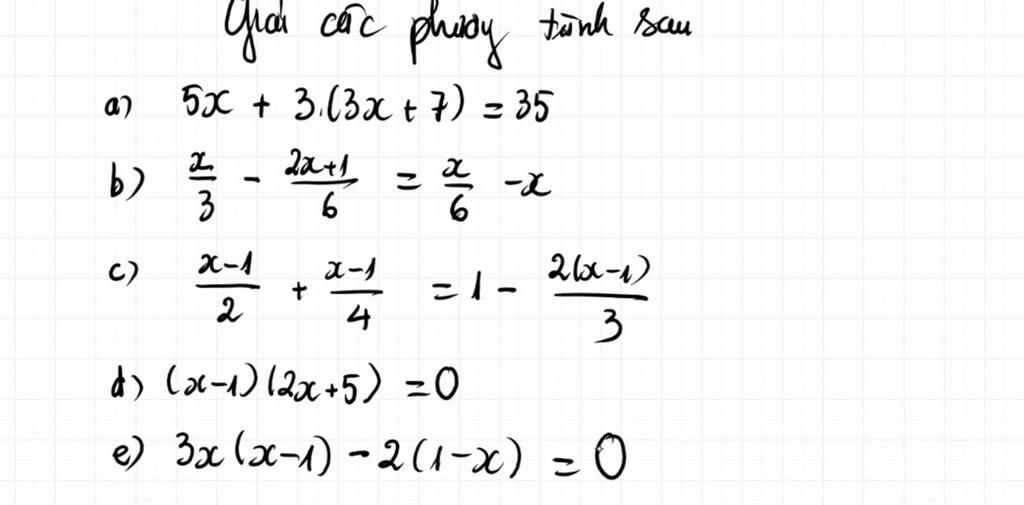 Giải các phương trình sau
a) 5x + 3.(3x + 7) = 35
b) x/3 - (2x+1)/6 = x/6 - x
c) (x-1)/2 + (x-1)/4 = 1 - 2(x-1)/3
d) (x-1)(2x+5) = 0
e) 3x(x-1) - 2(1-x) = 0